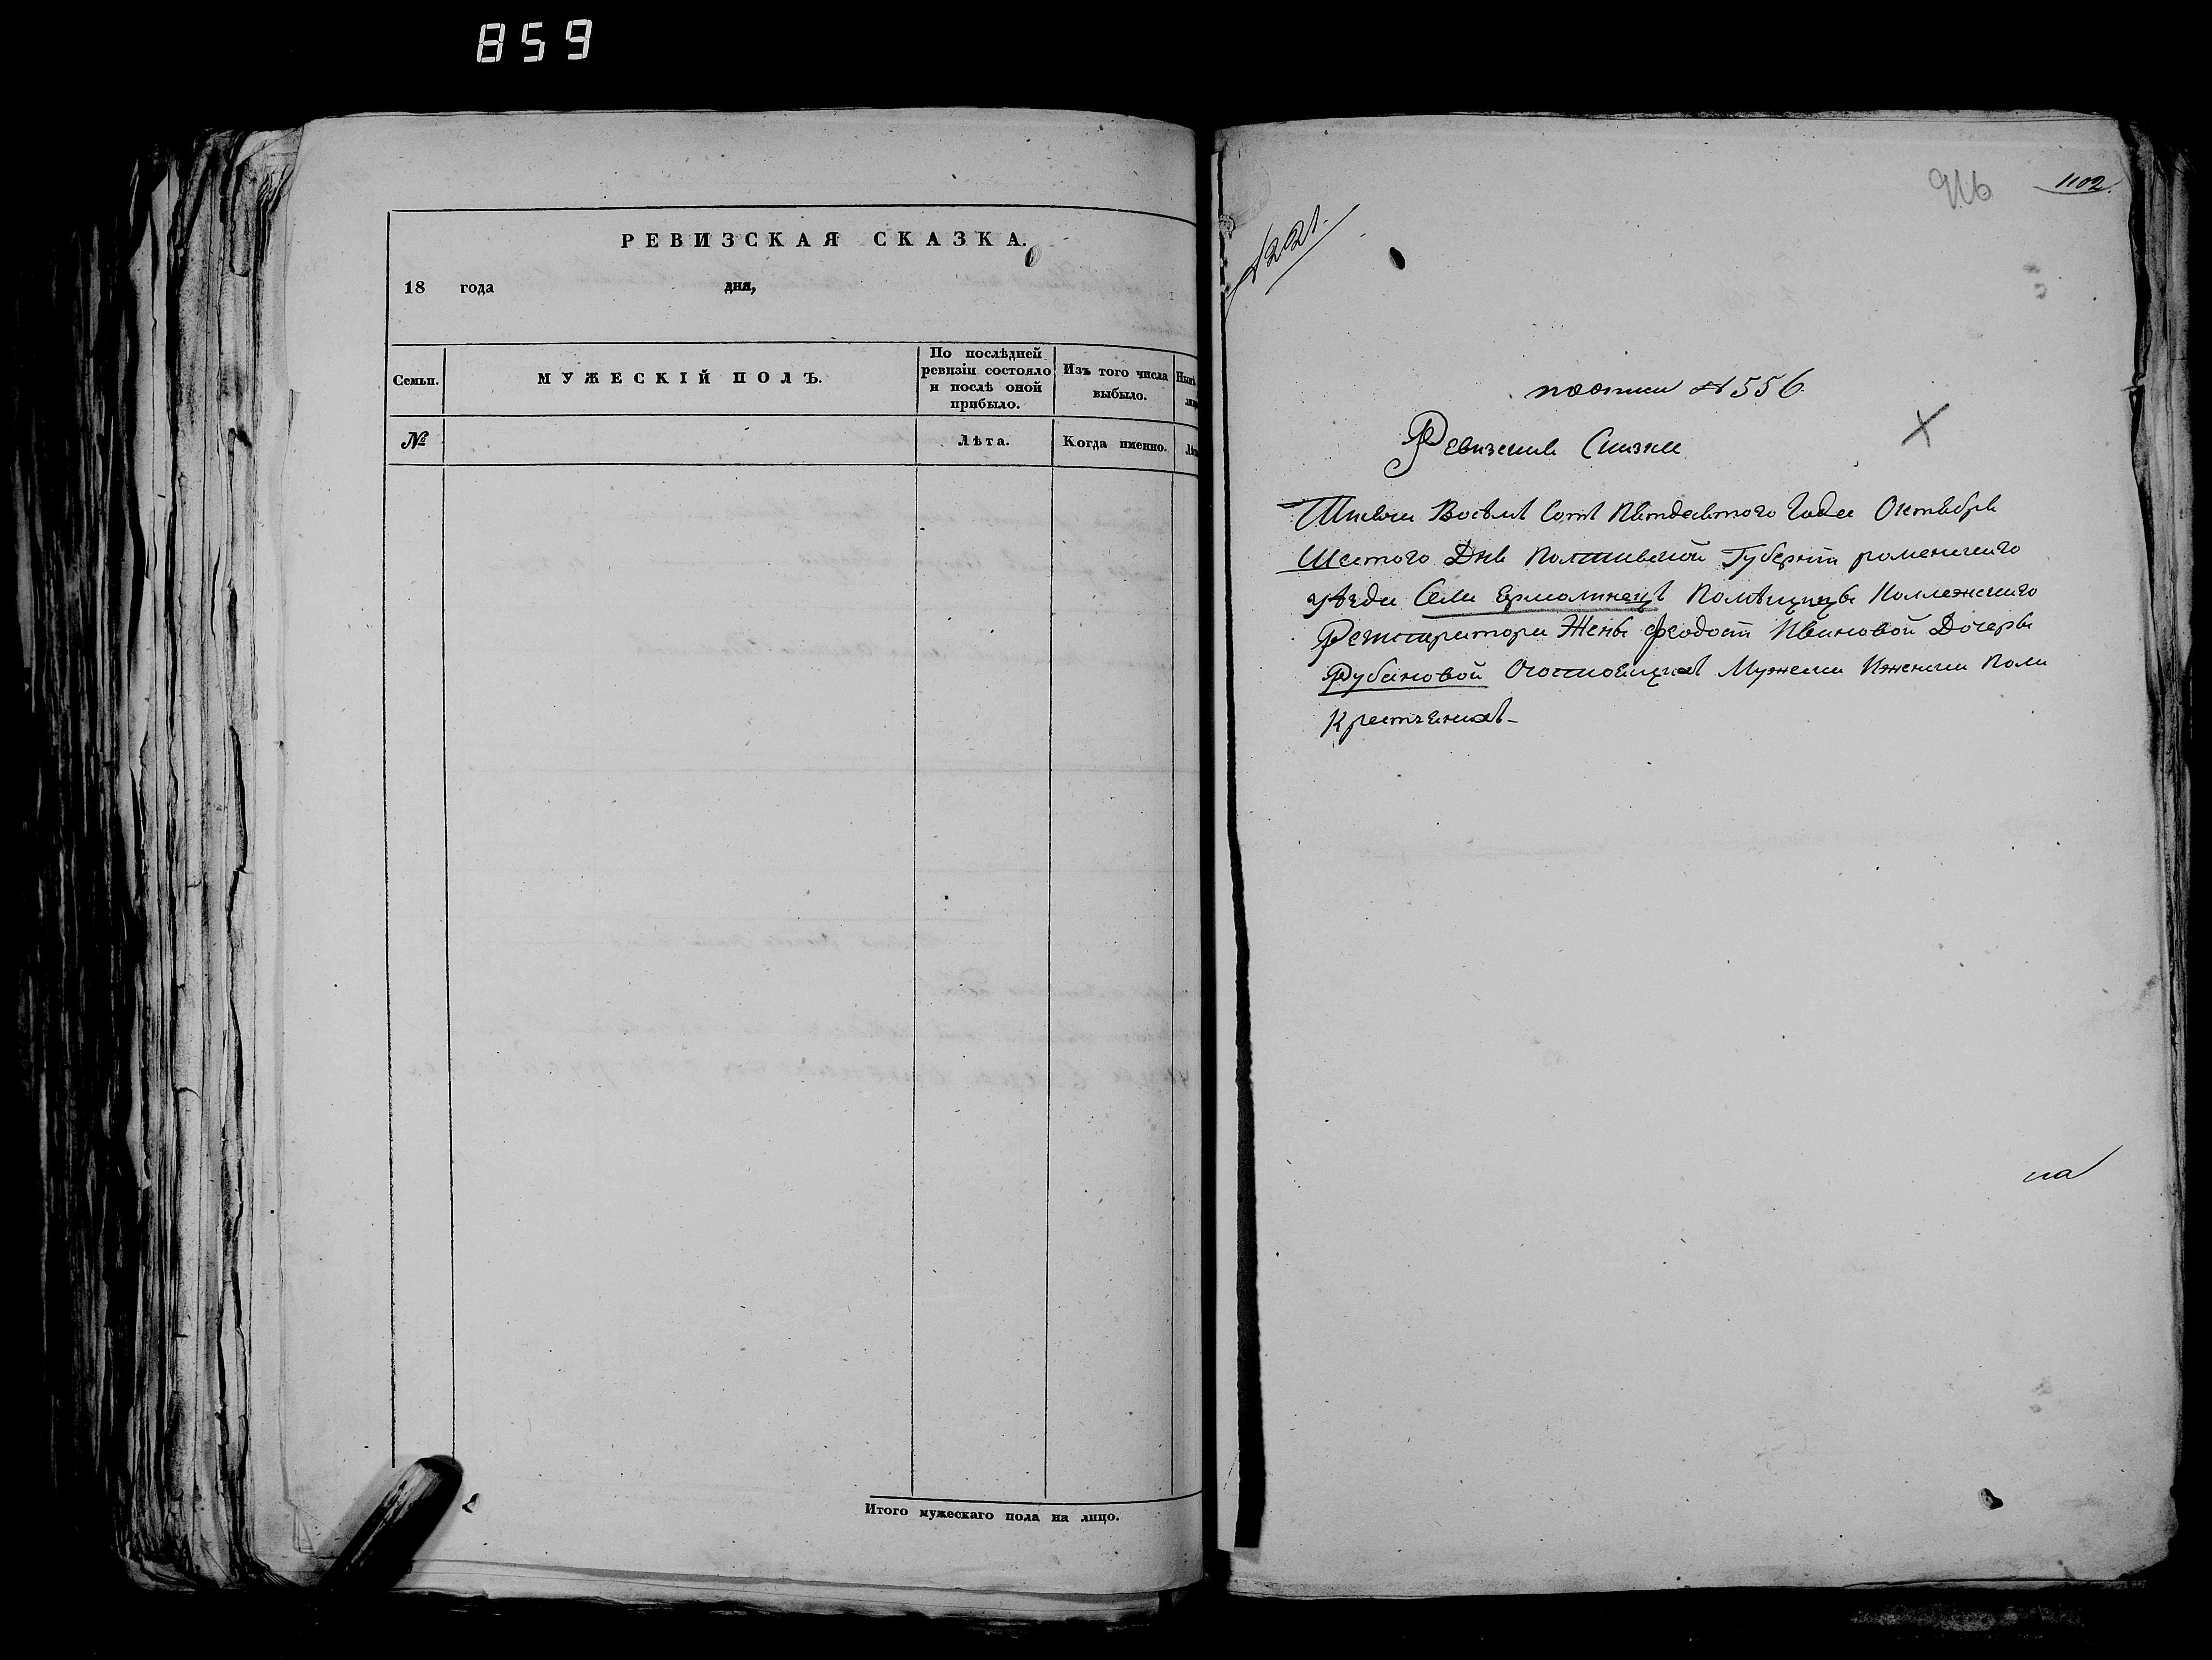 859
РЕВИЗСКАЯ СКАЗКА.
18 года дня,
Семьи.
МУЖЕСКІЙ ПОЛЪ.
По послѣдней ревизіи состояло и послѣ оной прибыло.
Изъ того числа выбыло.
№
Лѣта.
Когда именно.
Итого мужескаго пола на лицо.
916
1102.
1221.
№ 556
Ревизская Сказка
Тысяча Восемъ Сотъ Пятдесятого Года Октября
Шестого Дня Полтавской Губерніи роменского
уѣзда Села Ермолинецъ Помѣщицы Коллежского
Регистратора Жены феодосіи Ивановой Дочеры
Рубановой Осостоящихъ Мужеска Иженска Пола
Крестьянехъ